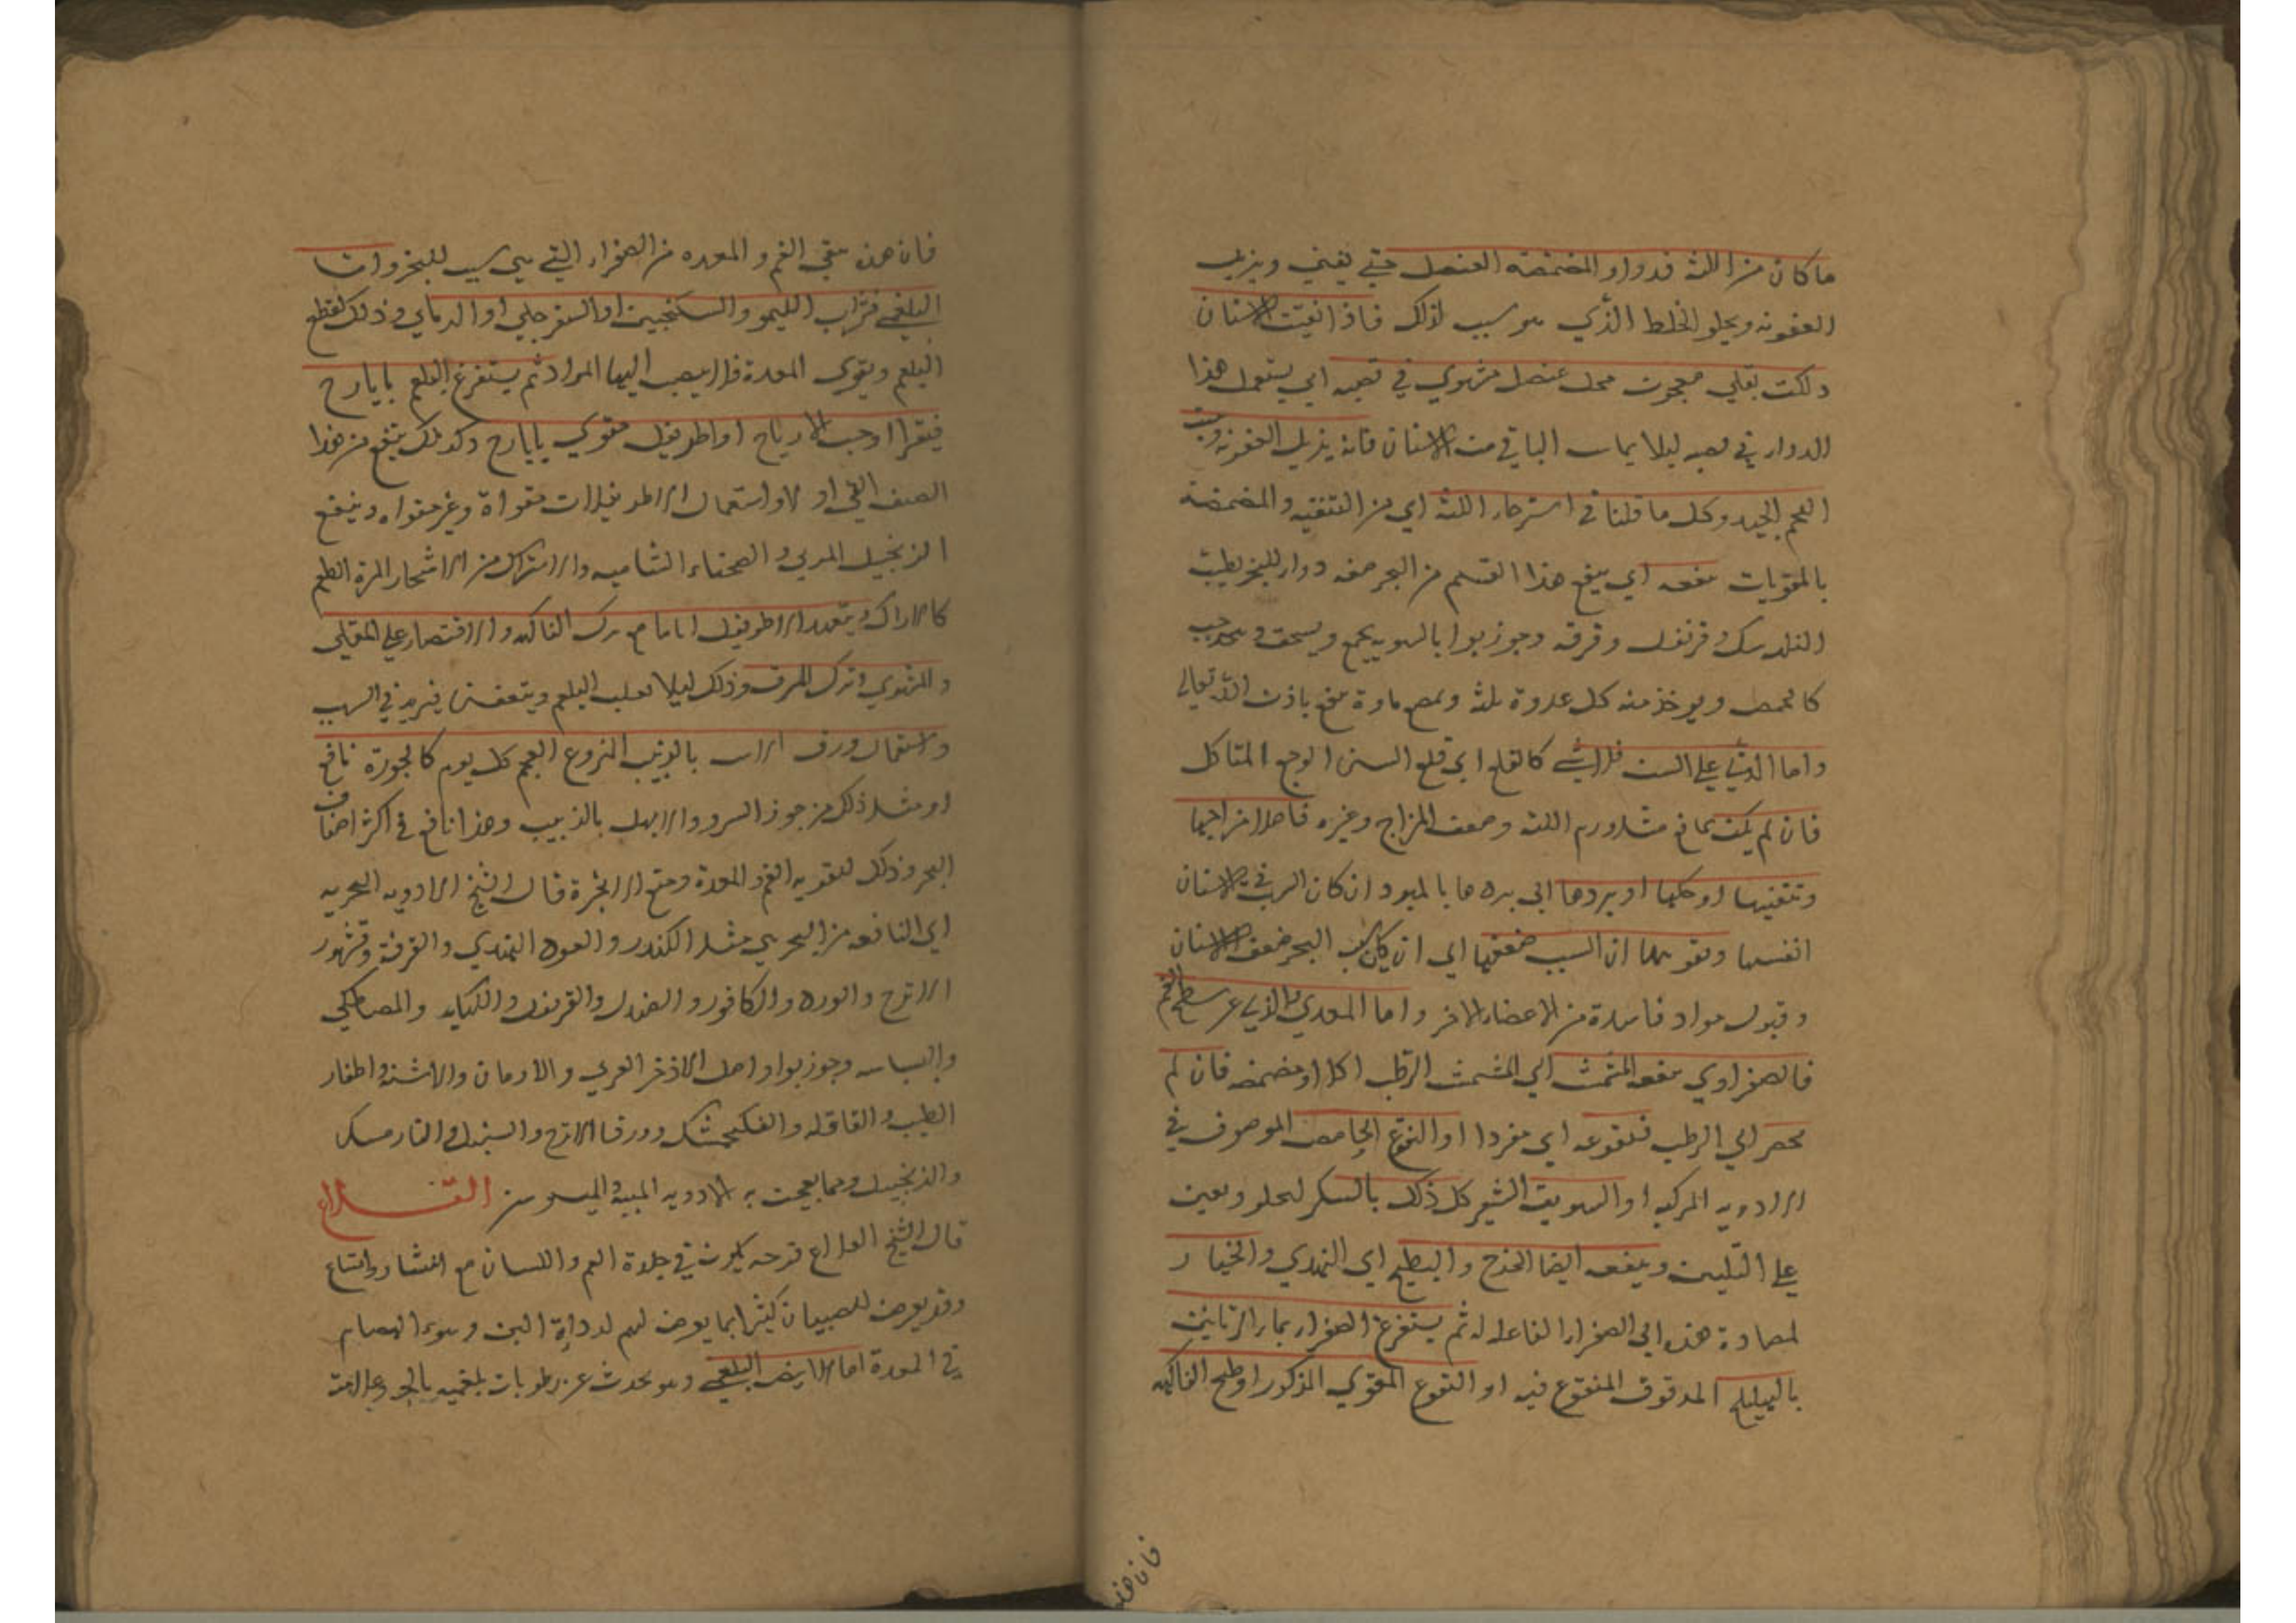 ما كان من اللثة فدواؤ المضمضه العنصل حتي يفني ويزيل
العفونه ويجلو الخلط الذي هو سبب لذلك فاذا نقيت الاسنان
دلكت بقلي معجون محل عنصل مشوي في قصبه اي يستعمل هذا
الدواء في قصبه ليلا يماس الباقي من الاسنان فانه يزيل العفونه وينبت
اللحم الجيد وكل ما قلنا في استرخاء اللثه اي من التنقيه والمضمضه
بالمقويات ينفعه اي ينفع هذا القسم من البخر صفه دواء للبخر يطيب
سك وقرنفل وقرفه وجوز بوا بالسويه يجمع ويسحق ويحبب
كالحمص ويوخذ منه كل غدوة ثلثه ويمص ماوة ينفع باذن الله تعالي
واما الذي علي السن فلا شي كالقلع اي قلع السن الوجع المتاكل
فان لم يكن مانع مثل ورم اللثه وضعف المزاج وغيره فاصلاح مزاجها
وتنقيتها او حكها او بردها اي بردها بالمبرد ان كان السبب في الاسنان
انفسها وتقويتها ان السبب ضعفها اي ان كان سبب البخر ضعف الاسنان
وقبول مواد فاسدة من الاعضاء الاخر واما المعدي والذي عن سطح الفم
فالصفراوي ينفعه المشمش اي المشمش الرطب اكلا او مضمضه فان لم
يحضر اي الرطب فنقوعه اي مفردا او النقوع الحامض الموصوف في
الادويه المركبه او السويق الشعير كل ذلك بالسكر ليحلو ويعين
علي التليين وينفعه ايضا الخوخ والبطيخ اي الهندي والخيار
لمضادة هذه اي الصفراء الفاعله له ثم يستفرغ الصفراء بماء الرمانين
بالهليلج المدقوق المنقوع فيه او النقوع المقوي المذكور او طبخ الفاكهه
فان هذه
فان هذه ينقي الفم والمعده من الصفراء التي هي سبب للبخر واما
البلغمي فشراب الليمو والسكنجبين او السفرجلي او الدماي وذلك لقطع
البلغم ويقوي المعدة فلا ينصب اليها المواد ثم يستفرغ البلغم بايارح
فيقرا او حب الارياح او اطريفل مقوي بايارح وكذلك ينفع من هذا
الصنف القي اولا واستعمال الاطريفلات مقواة وغير مقواه وينفع
الزنجبيل المربي والصحناء الشاميه والاستياك من الاشجار المرة الطعم
كالاراك ويتعهد الاطريفل اياما مع ترك الفاكهه والاقتصار علي القلي
والمشوي وترك المرق وذلك ليلا يغلب البلغم ويتعفن فيزيد في السبب
واستعمال ورق الاس بالزبيب المنزوع العجم كل يوم كالجوزة نافع
او مثل ذلك من جوز السرو والابهل بالذبيب وهذا نافع في اكثر اصناف
البخر وذلك لتقويه الفم والمعدة ومنع الابخرة قال الشيخ الادويه البخريه
اي النافعه من البخر هي مثل الكندر والعود الهندي والقرفة وقشور
الاترج والورد والكافور والصندل والقرنفل والكبابه والمصطكي
والبسباسه وجوز بوا واصل الاذخر العربي والارمان والاشنة واظفار
الطيب والقاقله والفلنجمشك وورق الاترج والسنبل والنارمسك
والزنجبيل ومما يعجن به الادويه الميبة والميسوسن القلاع
قال الشيخ القلاع قرحه يكون في جلدة الفم واللسان مع انتشار واتساع
وقد يعرض للصبيان كثيرا مما يعرض لهم لرداة اللبن وسوء انهضام
في المعدة اما الابيض البلغمي وهو يحدث عن رطوبات بلغميه